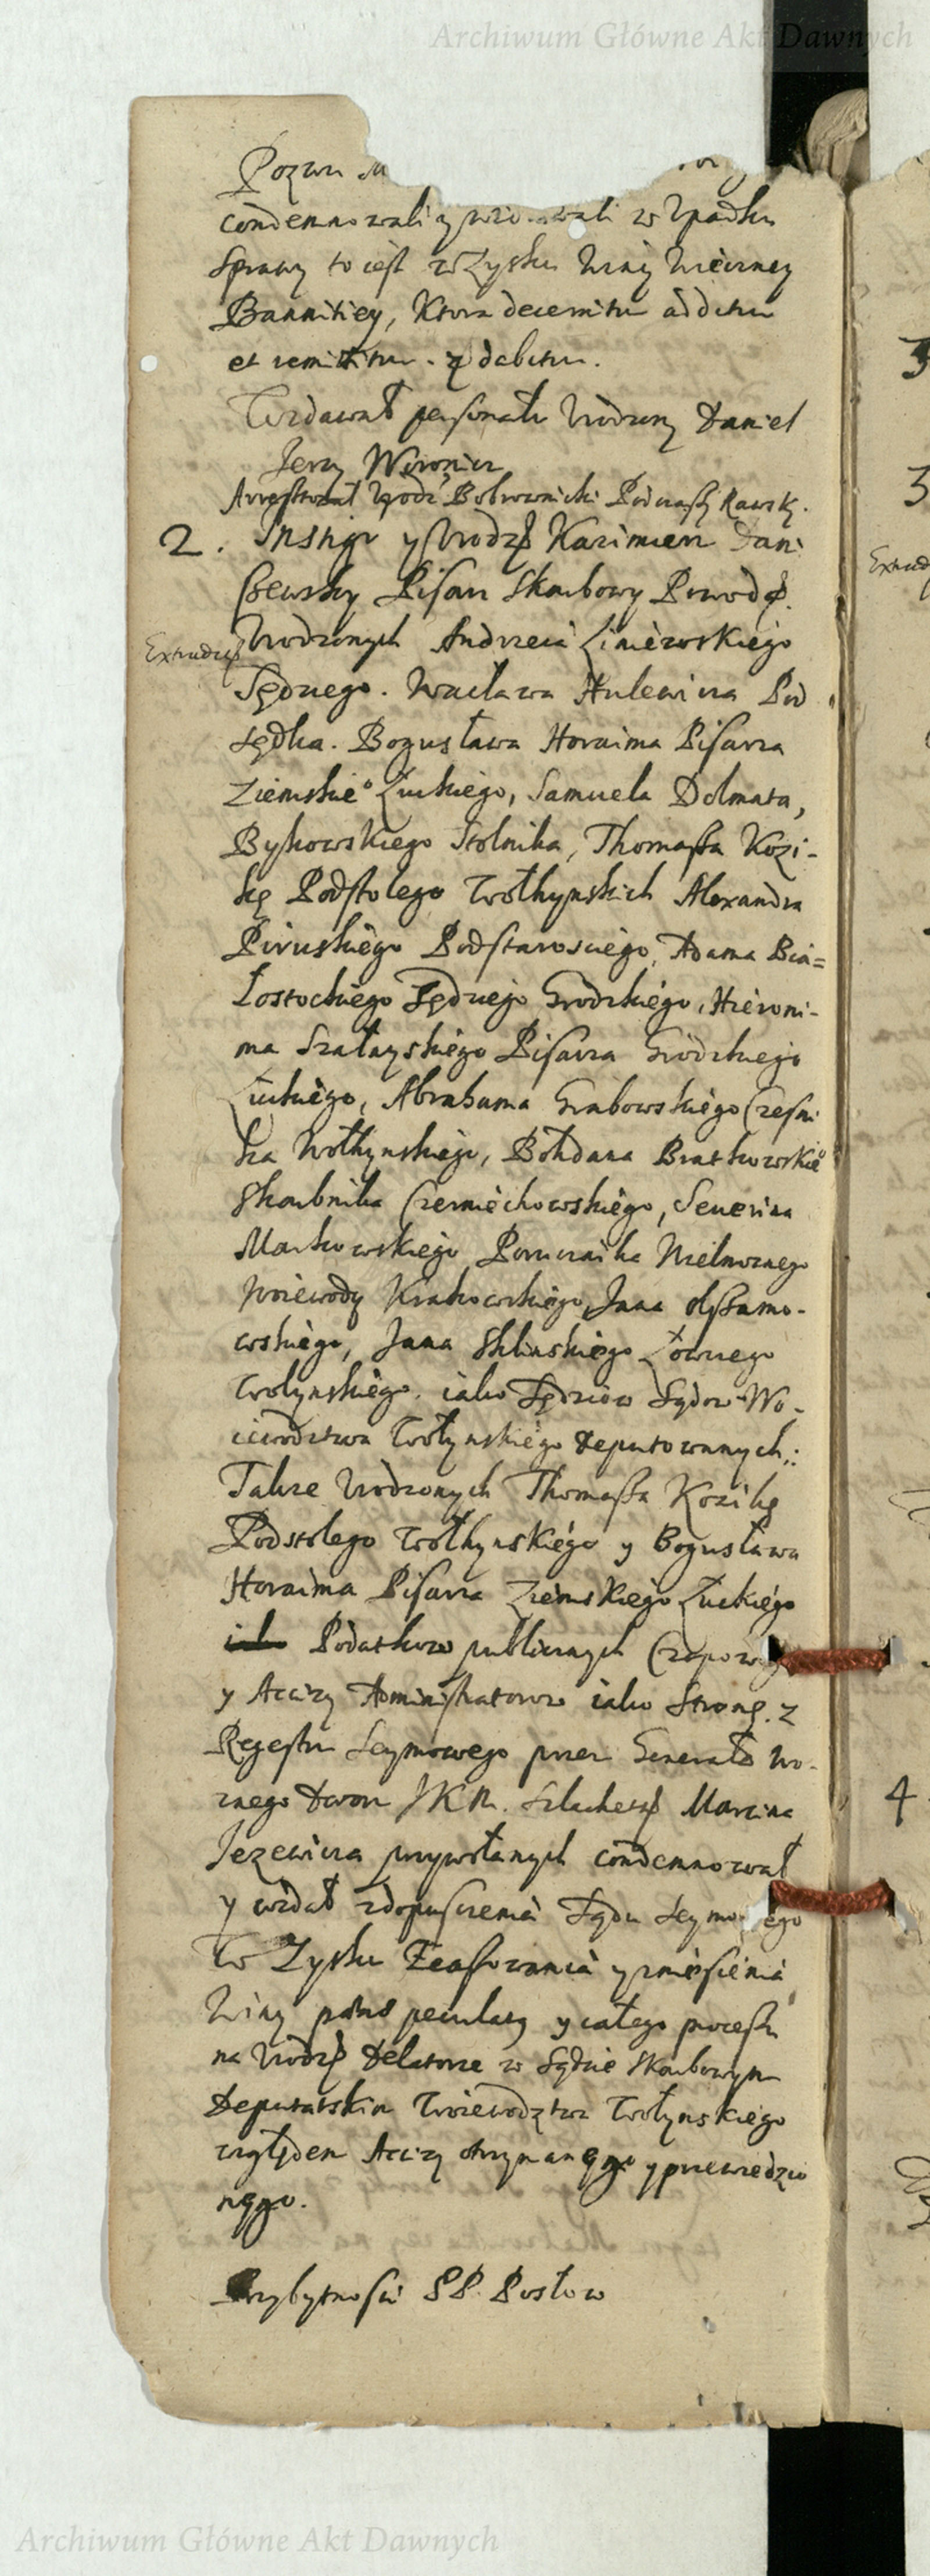 Archiwum Główne Akt Dawnych
Pozwu
condemnowali y w Upadku
Sprawy to iest w Zysku Winy Wieczney
Bannitiey, Ktora decernitur additur
et remittitur. y dabitur.
Wzdawał personaliter Urodzony Daniel
Jerzy Woronicz
Arrestował Urodz Bobrownicki Podczaszy Rawsky.
2. Instigr y Urodzo Kazimierz Dani
szewsky Pisarz Skarbowy Powodo.
Extradit
Urodzonych Andrzeia Liniewskiego
Sędziego. Wacława Hulewicza Pod
sędka. Bogusława Horaima Pisarza
Ziemskieo Łuckiego, Samuela Dolmata,
Bykowskiego Stolnika, Thomasza Kozi-
kę Podstolego Wołhynskich Alexandra
Piruskiego Podstarosciego, Adama Bia=
łostockiego Sędziego Grodzkiego, Hieroni-
ma Szałayskiego Pisarza Grodzkiego
Łuckiego, Abrahama Grabowskiego Czesni
ka Wołhynskiego, Bohdana Bratkowskieo
Skarbnika Czerniechowskiego, Seuerina
Markowskiego Porucznika Wielmoznego
Woiewody Krakowskiego, Jana
wskiego, Jana Sklinskiego Łowczego
Wołynskiego. iako Sędziow Sądow Wo-
iewodztwa Wołynskiego Deputowanych:
Takze Urodzonych Thomasza Kozikę
Podstolego Wołhynskiego y Bogusława
Horaima Pisarza Ziemskiego Łuckiego
Podatkow publicznych Czopowego
y Accizy Administratorow iako Stronę. z
Regestru Seymowego przez Generała Wo-
znego Dworu JKM. Szlachetno Marcina
Jezewicza przywołanych condemnował
y wzdał z dopuszczenia Sądu Seymowego
w Zysku Zcassowania y zniesienia
Winy peculaty y całego processu
na Urodzo Delatorze w Sądzie Skarbowym
Deputatskim Woiewodztwa Wołynskiego
względem Accizy otrzymanego y przewiedzio
nego.
Przybytnosci PP. Posłow
3
3
4
Archiwum Główne Akt Dawnych